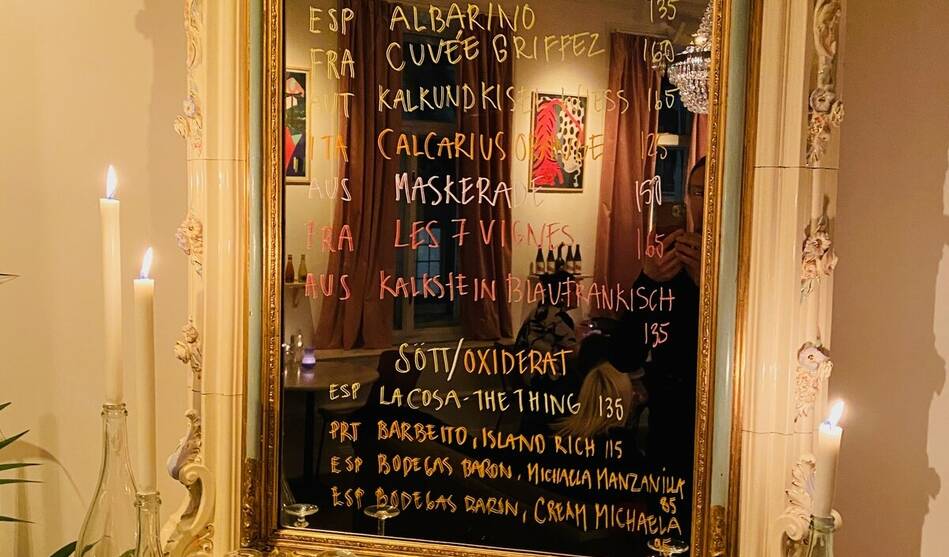 ESP ALBARINO 135
FRA CUVÉE GRIFFEZ 160
AUT KALKUNDKISEL WEISS 165
ITA CALCARIUS ORANGE 125
AUS MASKERADE 150
FRA LES 7 VIGNES 165
AUS KALKSTEIN BLAUFRANKISCH
135
SÖTT/OXIDERAT
ESP LA COSA-THE THING 135
PRT BARBEITO, ISLAND RICH 115
ESP BODEGAS BARON, MICHAELA MANZANILLA
85
ESP BODEGAS BARON, CREAM MICHAELA